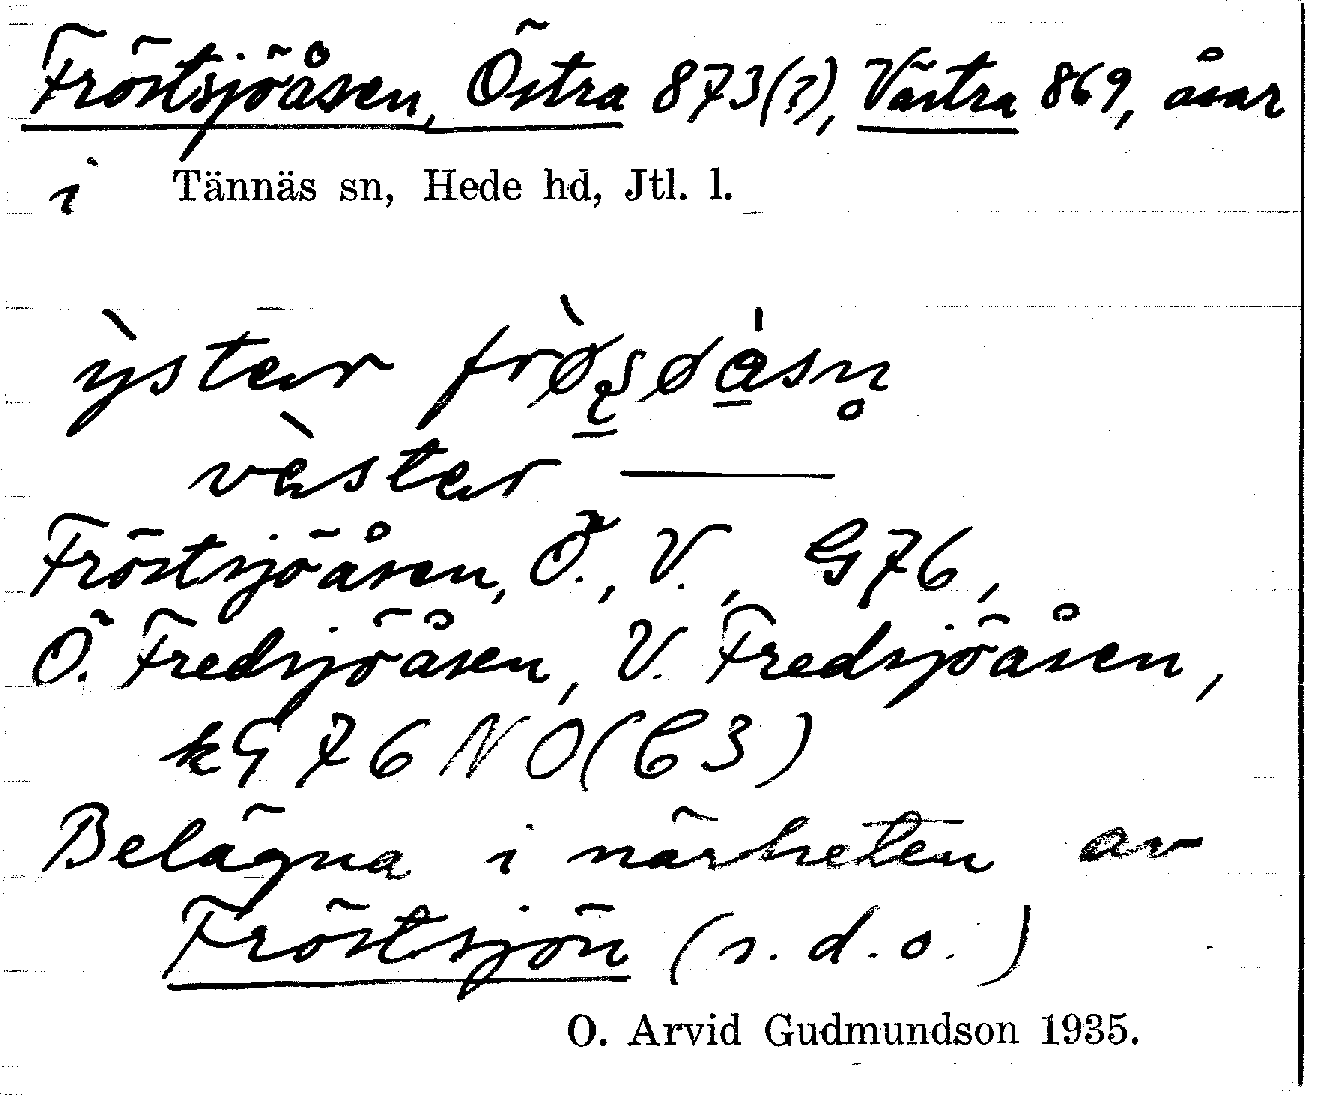 Fröstsjöåsen, Östra 873(?), Västra 869, åsar
i Tännäs sn, Hede hd, Jtl. l.
ỳster
vèster
Fröstsjöåsen, Ö., V., G76,
Ö. Fredsjöåsen, V. Fredsjöåsen,
kG 76 NO (C3)
Belägna i närheten av
Fröstsjön (s.d.o.)
O. Arvid Gudmundson 1935.